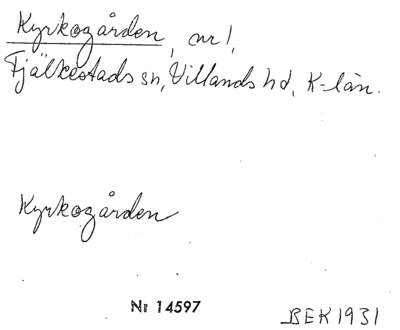 Kyrkogården, nr 1,
Fjälkestads sn, Villands hd, K-län.
Kyrkogården
Nr 14597
BEK 1931